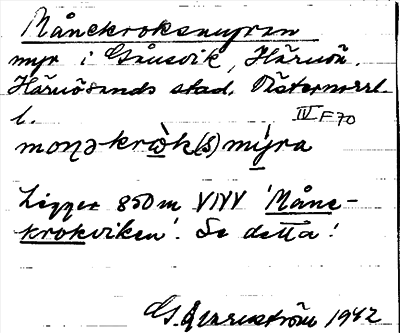 Månekroksmyran
myr i Gånsvik, Härnön.
Härnösands stad. Västernorrl.
l.
IV F 70
monəkrò̱k(s)mýra
Ligger 850 m VNV 'Måne-
krokviken'. Se detta!
1942